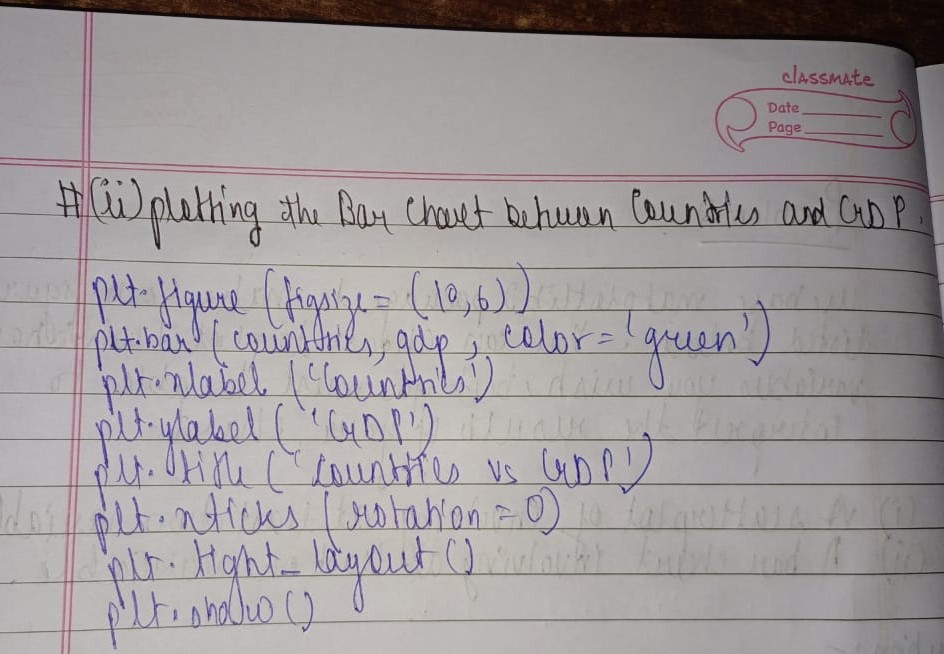 classmate
Date
Page
#(ii) plotting the Bar Chart between Countries and GDP.
plt.figure (figsize = (10,6))
plt.bar (countries, gdp, color = 'green')
plt.xlabel ('Countries')
plt.ylabel ('GDP')
plt.title ('Countries vs GDP')
plt.xticks (rotation = 0)
plt.tight_layout ()
plt.show ()